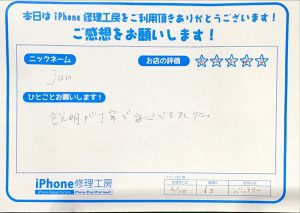 本日は iPhone 修理工房をご利用頂きありがとうございます!
ご感想をお願いします!
ニックネーム
お店の評価 ☆☆☆☆☆
jun
ひとことお願いします!
説明が丁寧で安心できました。
iPhone修理工房
6/10 6s バッテリー